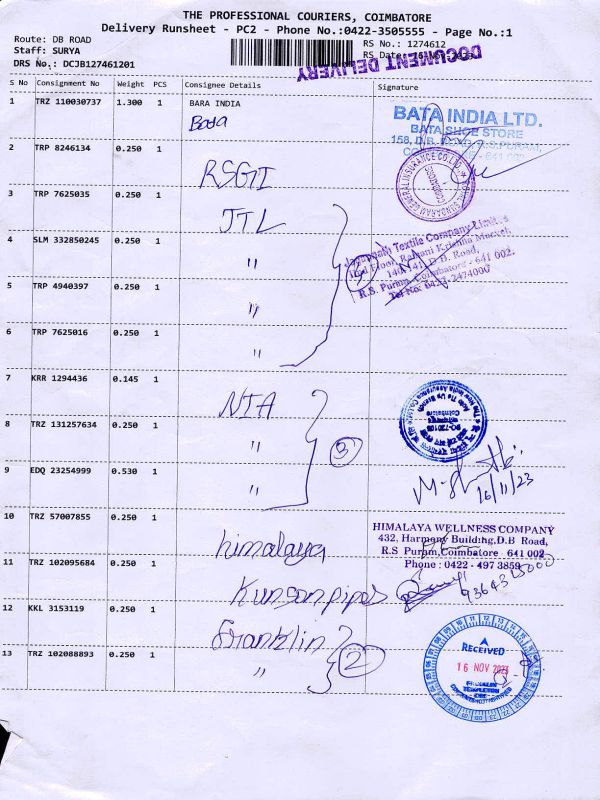 THE PROFESSIONAL COURIERS, COIMBATORE
Delivery Runsheet - PC2 - Phone No.:0422-3505555 - Page No.:1
Route: DB ROAD
Staff: SURYA
DRS No.: DCJB127461201
RS No.: 1274612
RS Date:
DOCUMENT DELIVERY
S No Consignment No Weight PCS Consignee Details Signature
1 TRZ 110030737 1.300 1 BARA INDIA
Bata
BATA INDIA LTD.
BATA SHOE STORE
158, D.B. ROAD, R.S. PURAM,
2 TRP 8246134 0.250 1
RSGI
3 TRP 7625035 0.250 1
JTL
4 SLM 332850245 0.250 1
"
Textile Company Limited
IInd Floor, Ramani Krishna
D.B. Road,
R.S. Puram, Coimbatore - 641 002.
Tel No: 0422-2474000
5 TRP 4940397 0.250 1
"
6 TRP 7625016 0.250 1
"
7 KRR 1294436 0.145 1
NIA
8 TRZ 131257634 0.250 1
"
3
9 EDQ 23254999 0.530 1
"
16/11/23
10 TRZ 57007855 0.250 1
himalaya
HIMALAYA WELLNESS COMPANY
432, Harmony Building, D.B Road,
R.S Puram, Coimbatore 641 002
Phone : 0422 - 497 3859
11 TRZ 102095684 0.250 1
12 KKL 3153119 0.250 1
Franklin
13 TRZ 102088893 0.250 1
"
2
RECEIVED
16 NOV 2023